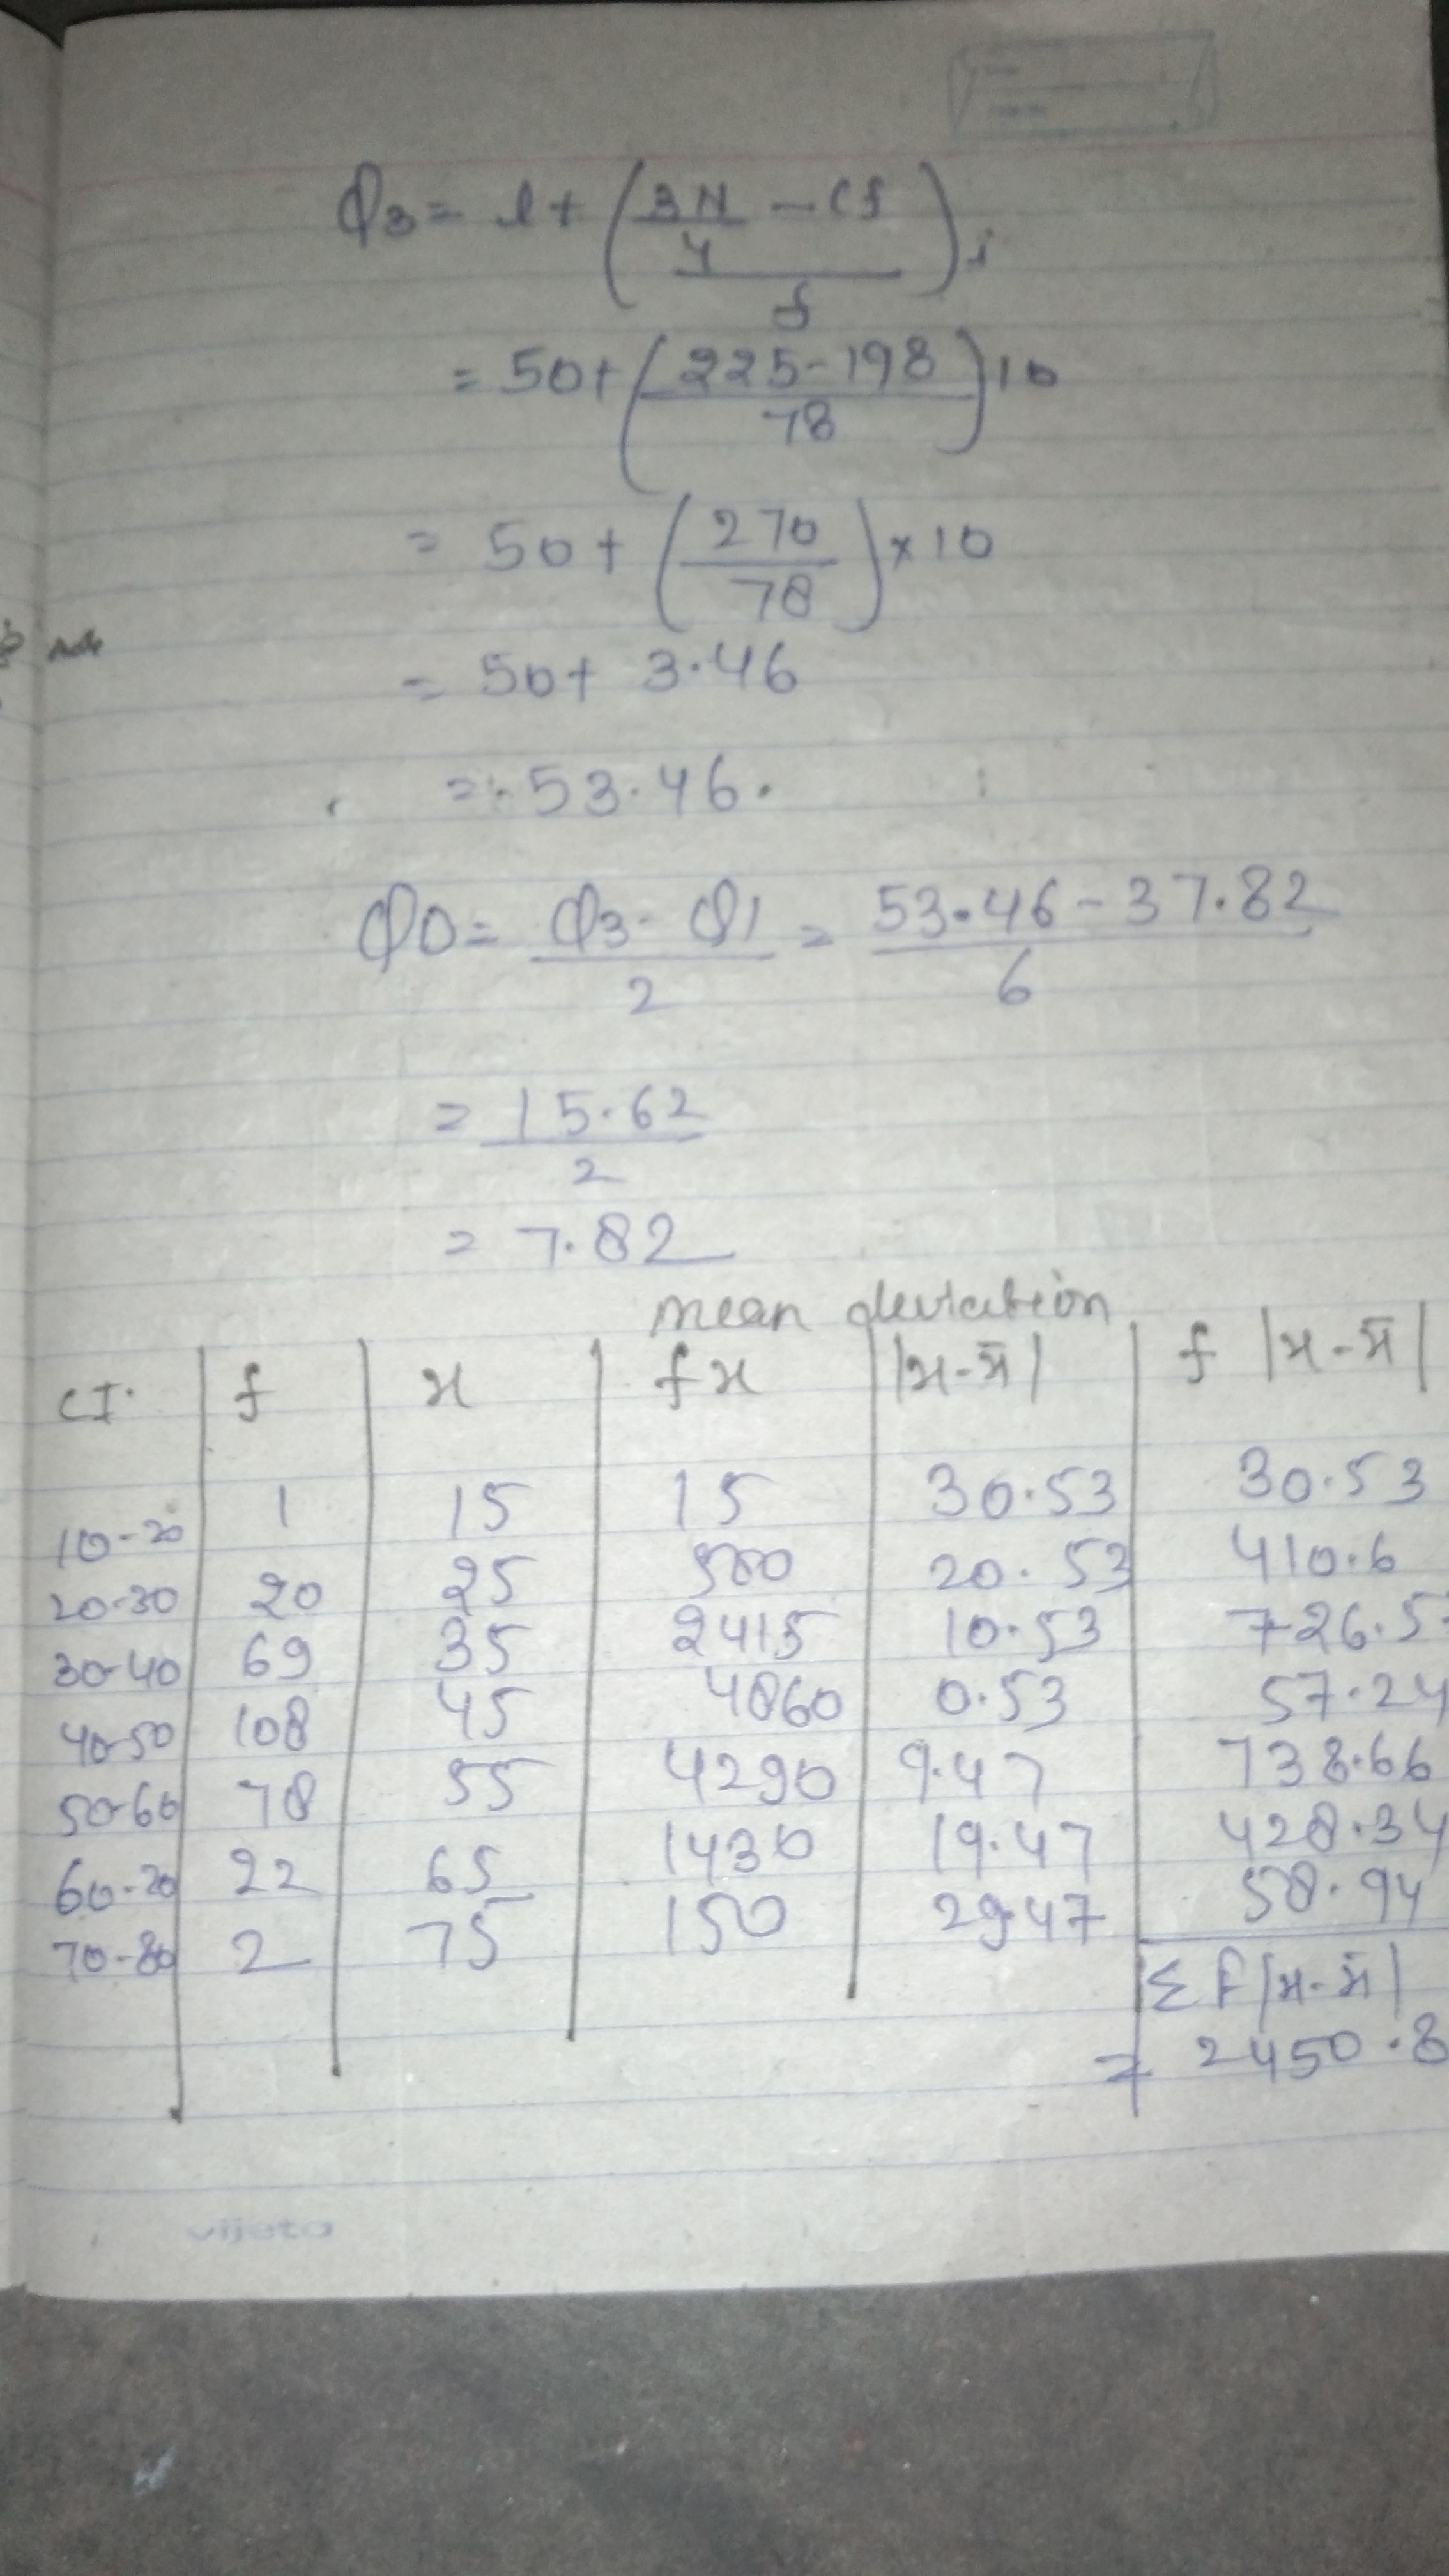 Q3 = l + (3N/4 - cf / f) i
= 50+ (225-198 / 78) 10
= 50+ (270 / 78) × 10
= 50+ 3.46
= 53.46.
QD = Q3 - Q1 / 2 = 53.46 - 37.82 / 6
= 15.62 / 2
= 7.82
mean deviation
CI. f x fx |x-x̄| f |x-x̄|
10-20 1 15 15 30.53 30.53
20-30 20 25 500 20.53 410.6
30-40 69 35 2415 10.53 726.5
40-50 108 45 4860 0.53 57.24
50-60 78 55 4290 9.47 738.66
60-70 22 65 1430 19.47 428.34
70-80 2 75 150 29.47 58.94
Σ f |x-x̄|
= 2450.8
vijeta